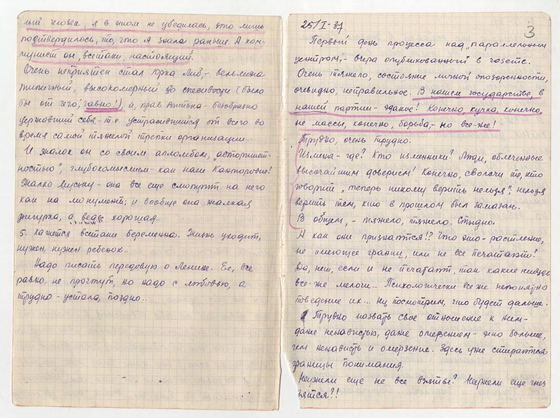 ный человек, я в этом не убедилась, это лишь
подтвердилось, то, что я знала раньше. А ком-
мунист он, всё-таки, настоящий.
Очень неприятен стал Юрка Либ,-
типичный, высокомерный до (было
бы от чего, главно!), а, прав
державший себя-т.е. устранившийся от всего во
время самой тяжелой трепки организации.
И жалок он со своим апломбом,
ностью", глубокомыслием как наш Канторович!
Жалко Мусику - она все еще смотрит на него
как на монумент; и вообще она жалкая
дикарка, а ведь хорошая.
Б. кажется всё-таки беременна. Жизнь уходит,
нужен, нужен ребенок.
Надо писать передовую о Ленине. Ее, все
равно, не прочтут, но надо с любовью, а
трудно - устала, поздно..
3
25/I-37
Первый день процесса над параллельным
центром,- вчера опубликованный в газете.
Очень тяжело, состояние личной опозоренности,
очевидно, неправильное. В нашем государстве, в
нашей партии - эдакое! Конечно кучка, конечно,
не массы, конечно, борьба,- но все-же!
Трудно, очень трудно.
Измена - где? Кто изменники? Люди, облеченные
высочайшим доверием! Конечно, сволочи те, кто
говорит, "теперь никому верить нельзя", нельзя
верить тем, кто в прошлом был замазан.
В общем, - тяжело, тяжело. Стыдно.
А как они признаются!? Что это - растление,
не имеющее границ, или не все печатают?
Да, нет, если и не печатают, так какие нибудь
все-же мелочи.. Психологически все же непонятно
поведение их... Ну, посмотрим, что будет дальше.
Трудно назвать свое отношение к ним -
даже ненавистью, даже омерзением - это больше,
чем ненависть и омерзение. Здесь уже стираются
границы понимания.
Неужели еще не все взяты? Неужели еще
?!